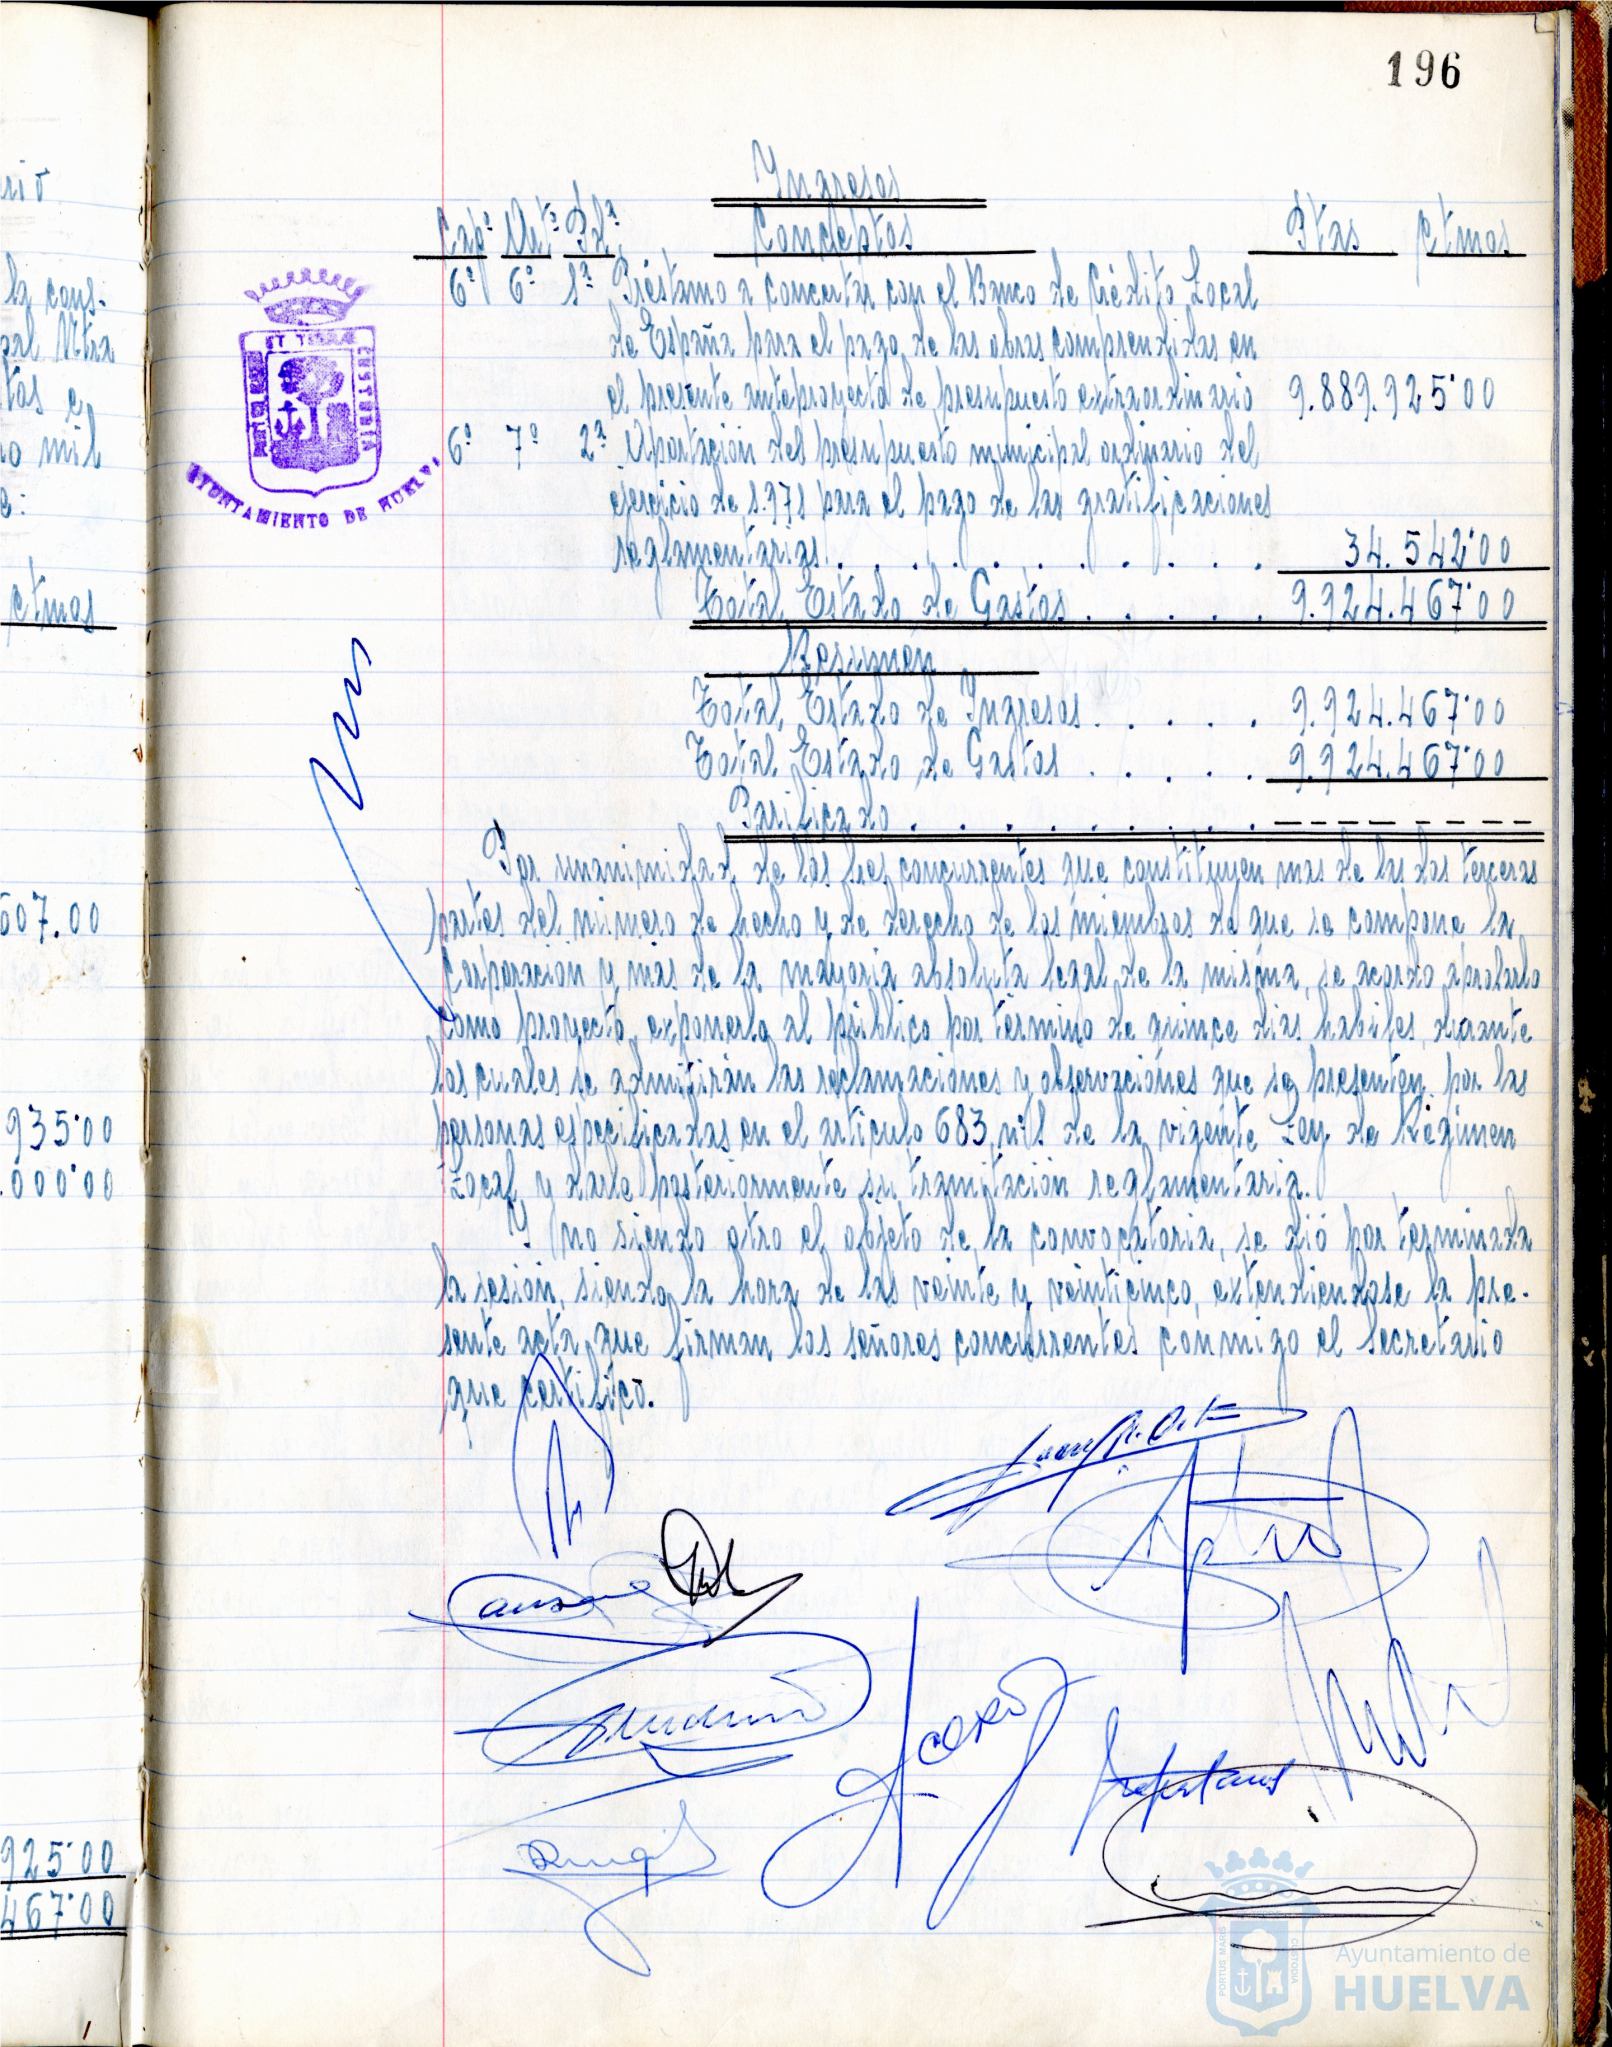 196
Ingresos
Capº Artº Pdª Conceptos Ptas ctmos
6º 6º 1ª Préstamo a concertar con el Banco de Crédito Local
de España para el pago de las obras comprendidas en
el presente anteproyecto de presupuesto extraordinario 9.889.925'00
6º 7º 2ª Aportación del presupuesto municipal ordinario del
ejercicio de 1.971 para el pago de las gratificaciones
reglamentarias. . . . . . . . . . 34.542'00
Total Estado de Gastos . . . . . 9.924.467'00
Resumen
Total Estado de Ingresos . . . . . 9.924.467'00
Total Estado de Gastos . . . . . 9.924.467'00
. . . . . . . . . - - - - - - -
Por unanimidad de los concurrentes que constituyen mas de las dos terceras
partes del número de hecho y de derecho de los miembros de que se compone la
Corporación y mas de la mayoria absoluta legal de la misma, se acordo aprobarlo
como proyecto, exponerlo al público por término de quince dias habiles, durante
los cuales se admitirán las reclamaciones y observaciones que se presenten por las
personas especificadas en el artículo 683, nº1 de la vigente Ley de Régimen
Local, y darle posteriormente su tramitación reglamentaria.
Y no siendo otro el objeto de la convocatoria, se dió por terminada
la sesión, siendo la hora de las veinte y veinticinco, extendiendose la pre-
sente acta, que firman los señores concurrentes conmigo el Secretario
que certifico.
AYUNTAMIENTO DE HUELVA
la cons-
mil
ctmos
607.00
935'00
.000'00
925'00
467'00
PORTUS MARIS
CUSTODIA
Ayuntamiento de
HUELVA